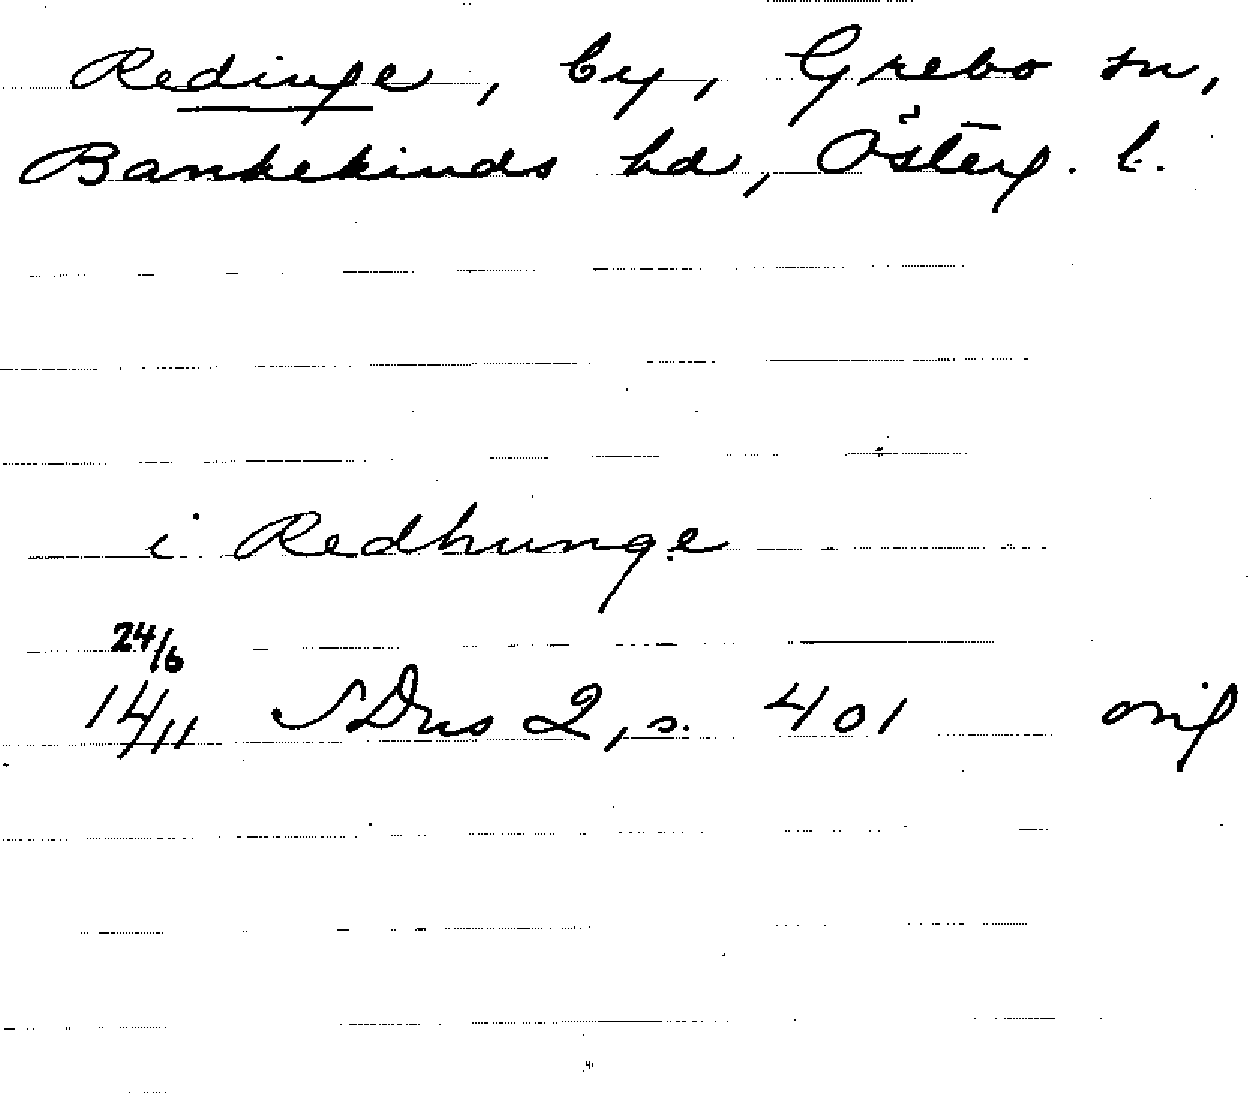 Redinge, by, Grebo sn,
Bankekinds hd, Österg. l.
i Redhunge
24/6
1411 SDns 2, s. 401 orig